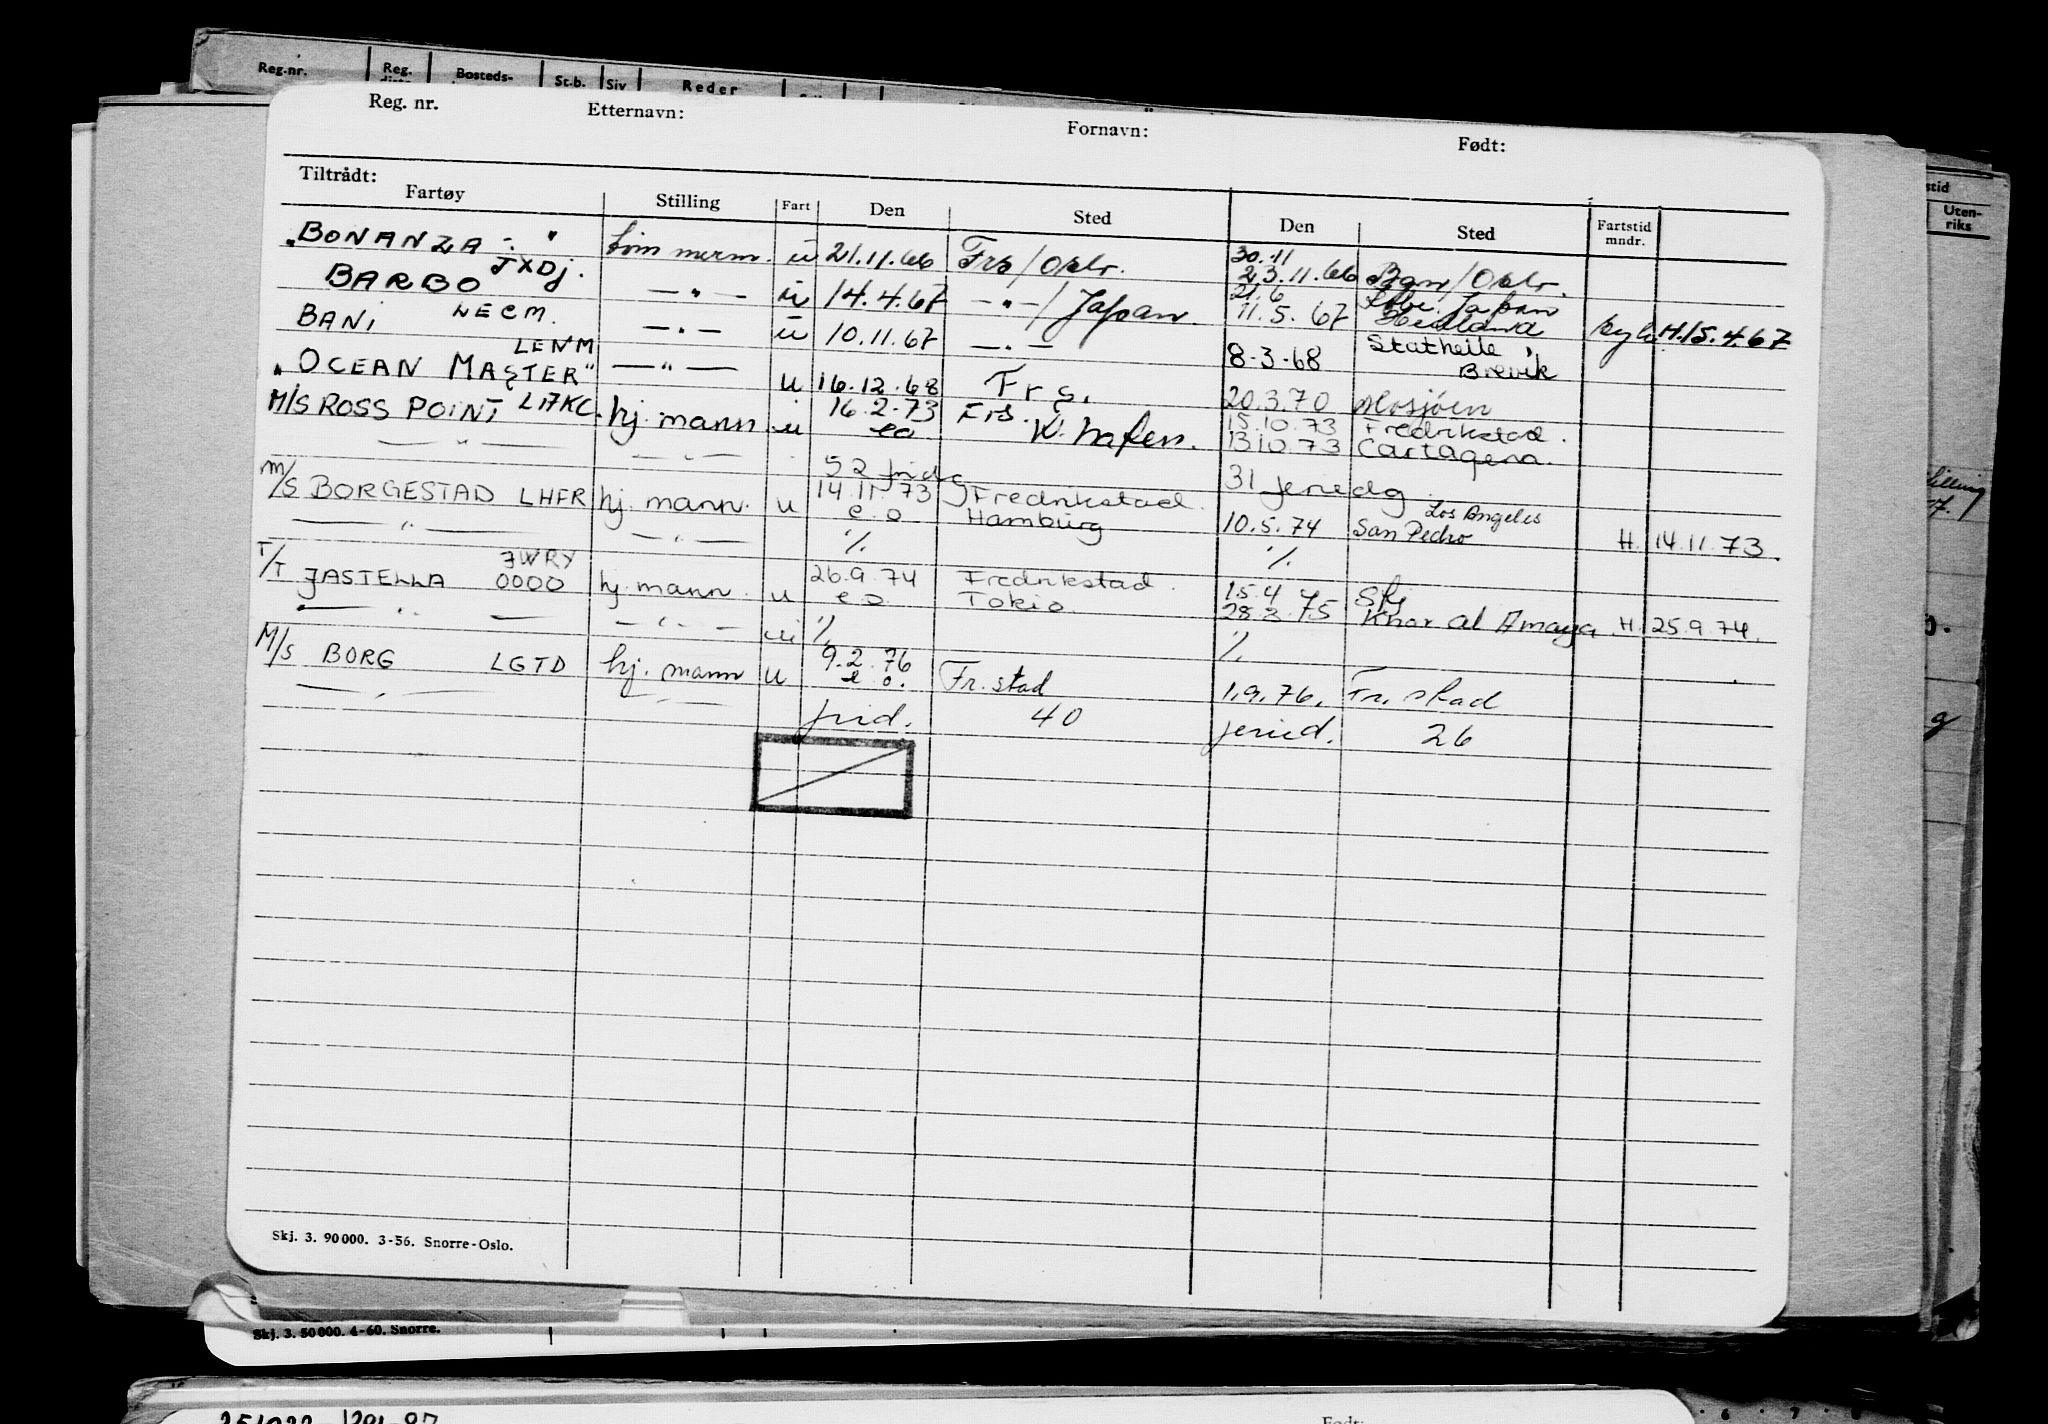 Reg.nr. Reg. Bosteds- St.b. Siv Reder
Reg. nr. Etternavn: Fornavn: Født:
Tiltrådt:
Fartøy Stilling Fart Den Sted Den Sted Fartstid mndr.
30.11
"BONANZA -"- tømmerm. u 21.11.66 Frs/Oslo. 23.11.66 /Oslo.
JXDJ. 21.6 Japan
BARBO —"— u 14.4.67 —"—/Japan. 11.5.67
LECM.
BANI —"— u 10.11.67 —"— 8-3-68 Stathelle, Brevik H.15.4.67
LENM
"OCEAN MASTER" —"— u 16.12.68 Frs. 20.3.70 Mosjøen
M/S ROSS POINT LIAKC. hj. mann u 16.2.73 Frs. 15.10.73 Fredrikstad.
—"— —"— eo K.hafen. 13.10.73 Cartagena.
52 31 jenedg
M/S BORGESTAD LHFR hj. mann. u 14.11.73 Fredrikstad.
—"— —"— e.o Hamburg 10.5.74 San Pedro Los Angeles H. 14.11.73.
% %
JWRY
T/T JASTELLA 0000 hj. mann. u 26.9.74 Fredrikstad. 15.4
—"— —"— e.o Tokio. 28.3.75 Khor al Amaya. H. 25.9.74.
% %
M/S BORG LGTD hj. mann u 9.2.76
—"— —"— e.o. Fr.stad 1.9.76. Fr.stad
40 26
Skj. 3. 90000. 3-56. Snorre-Oslo.
Skj. 3. 50000. 4-60. Snorre.
Født:
Uten-
riks